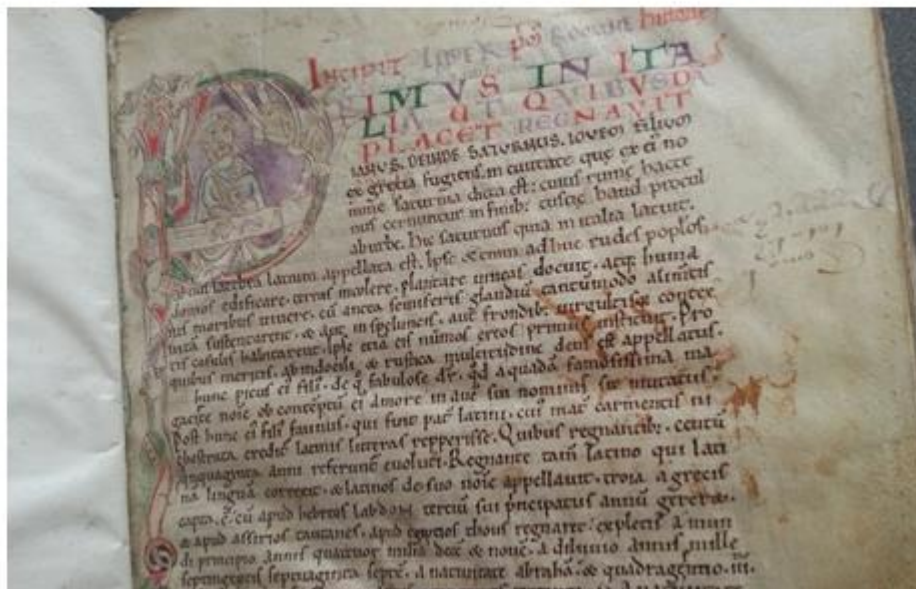 INCIPIT LIBER
IMVS IN ITA
LIA UT QVIBUSDA
PLACET REGNAVIT
IANUS. DEINDE SATURNUS. IOVEM FILIUM
ex grecia fugiens. in civitate que ex ei no
mine saturnia dicta est: cuius ruine hacte
nus cernuntur in finib: tuscie haud procul
ab urbe. Hic saturnus quia in italia latuit.
latebra latium appellata est. Ipse & enim adhuc rudes poplos
domos edificare. terras incolere. plantare vineas docuit. atq; humа
nis moribus vivere. cū antea semiferis glandiū tantūmodo alimtis
vitā sustentarent. & aut in speluncis. aut frondib: virgultisq; contex
tis casulis habitarent. Ipse etiā eis nūmos ereos primus instituit. Pro
quibus meritis. ab indocili & rustica multitudine deus est appellatus.
hunc picus ei fili. de q fabulose dr. qd a quadam famosissima ma
ob conteptū ei amore in avē sui nominis sit mutatus.
post hunc ei fili faunus. qui fuit pat latini. cui mat carmentis ni
credit latinas litteras repperisse. Quibus regnantib: centū
quinquaginta anni referunt evoluti. Regnante tam latino qui lati
na linguā correxit. & latinos de suo noie appellavit. troia a grecis
capta. cū apud hebreos labdon terciū sui principatus annū gereret.
& apud assirios tautanes. apud egyptios thous regnaret: expletis a mun
di principio annis quatuor milia & nove. a diluvio annis mille
septingentis septuaginta septe. a nativitate abrahā & quadragentio. iii.